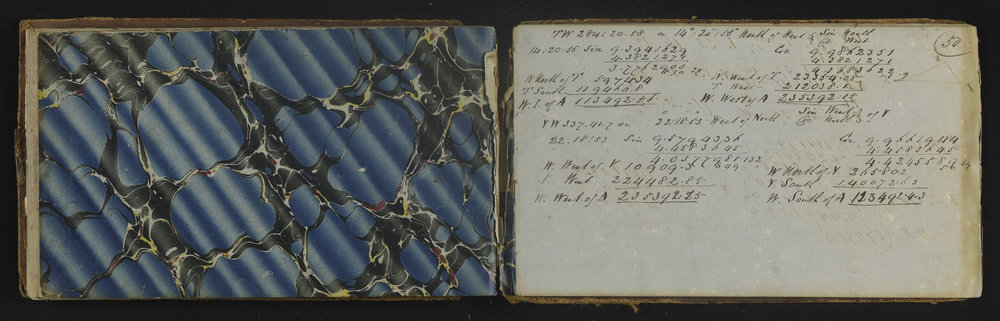 TW 284:20:58 a 14°:20':58" North of West { Sin North
{ Co. West
50
14:20:58 Sin 9.3941629 Co. 9.9862351
4.3821271 4.3821271
3.7762900 4.3683622
W North of T 5974.34 W. West of T 23354.05
T South 11946.8 T West 212038.1
W. S. of A 113492.46 W. West of A 235392.15
VW 337.41.7 or 22.18.53 West of North { Sin West
{ Co. North } of V
22.18:53 Sin 9.5794336 Co. 9.9661944
4.4583645 4.4583645
4.0377981 4.4245589
W. West of V 10909.3 W North of V 265802
V. West 224482.85 V South 140072.63
W. West of A 235392.25 W. South of A 113492.43